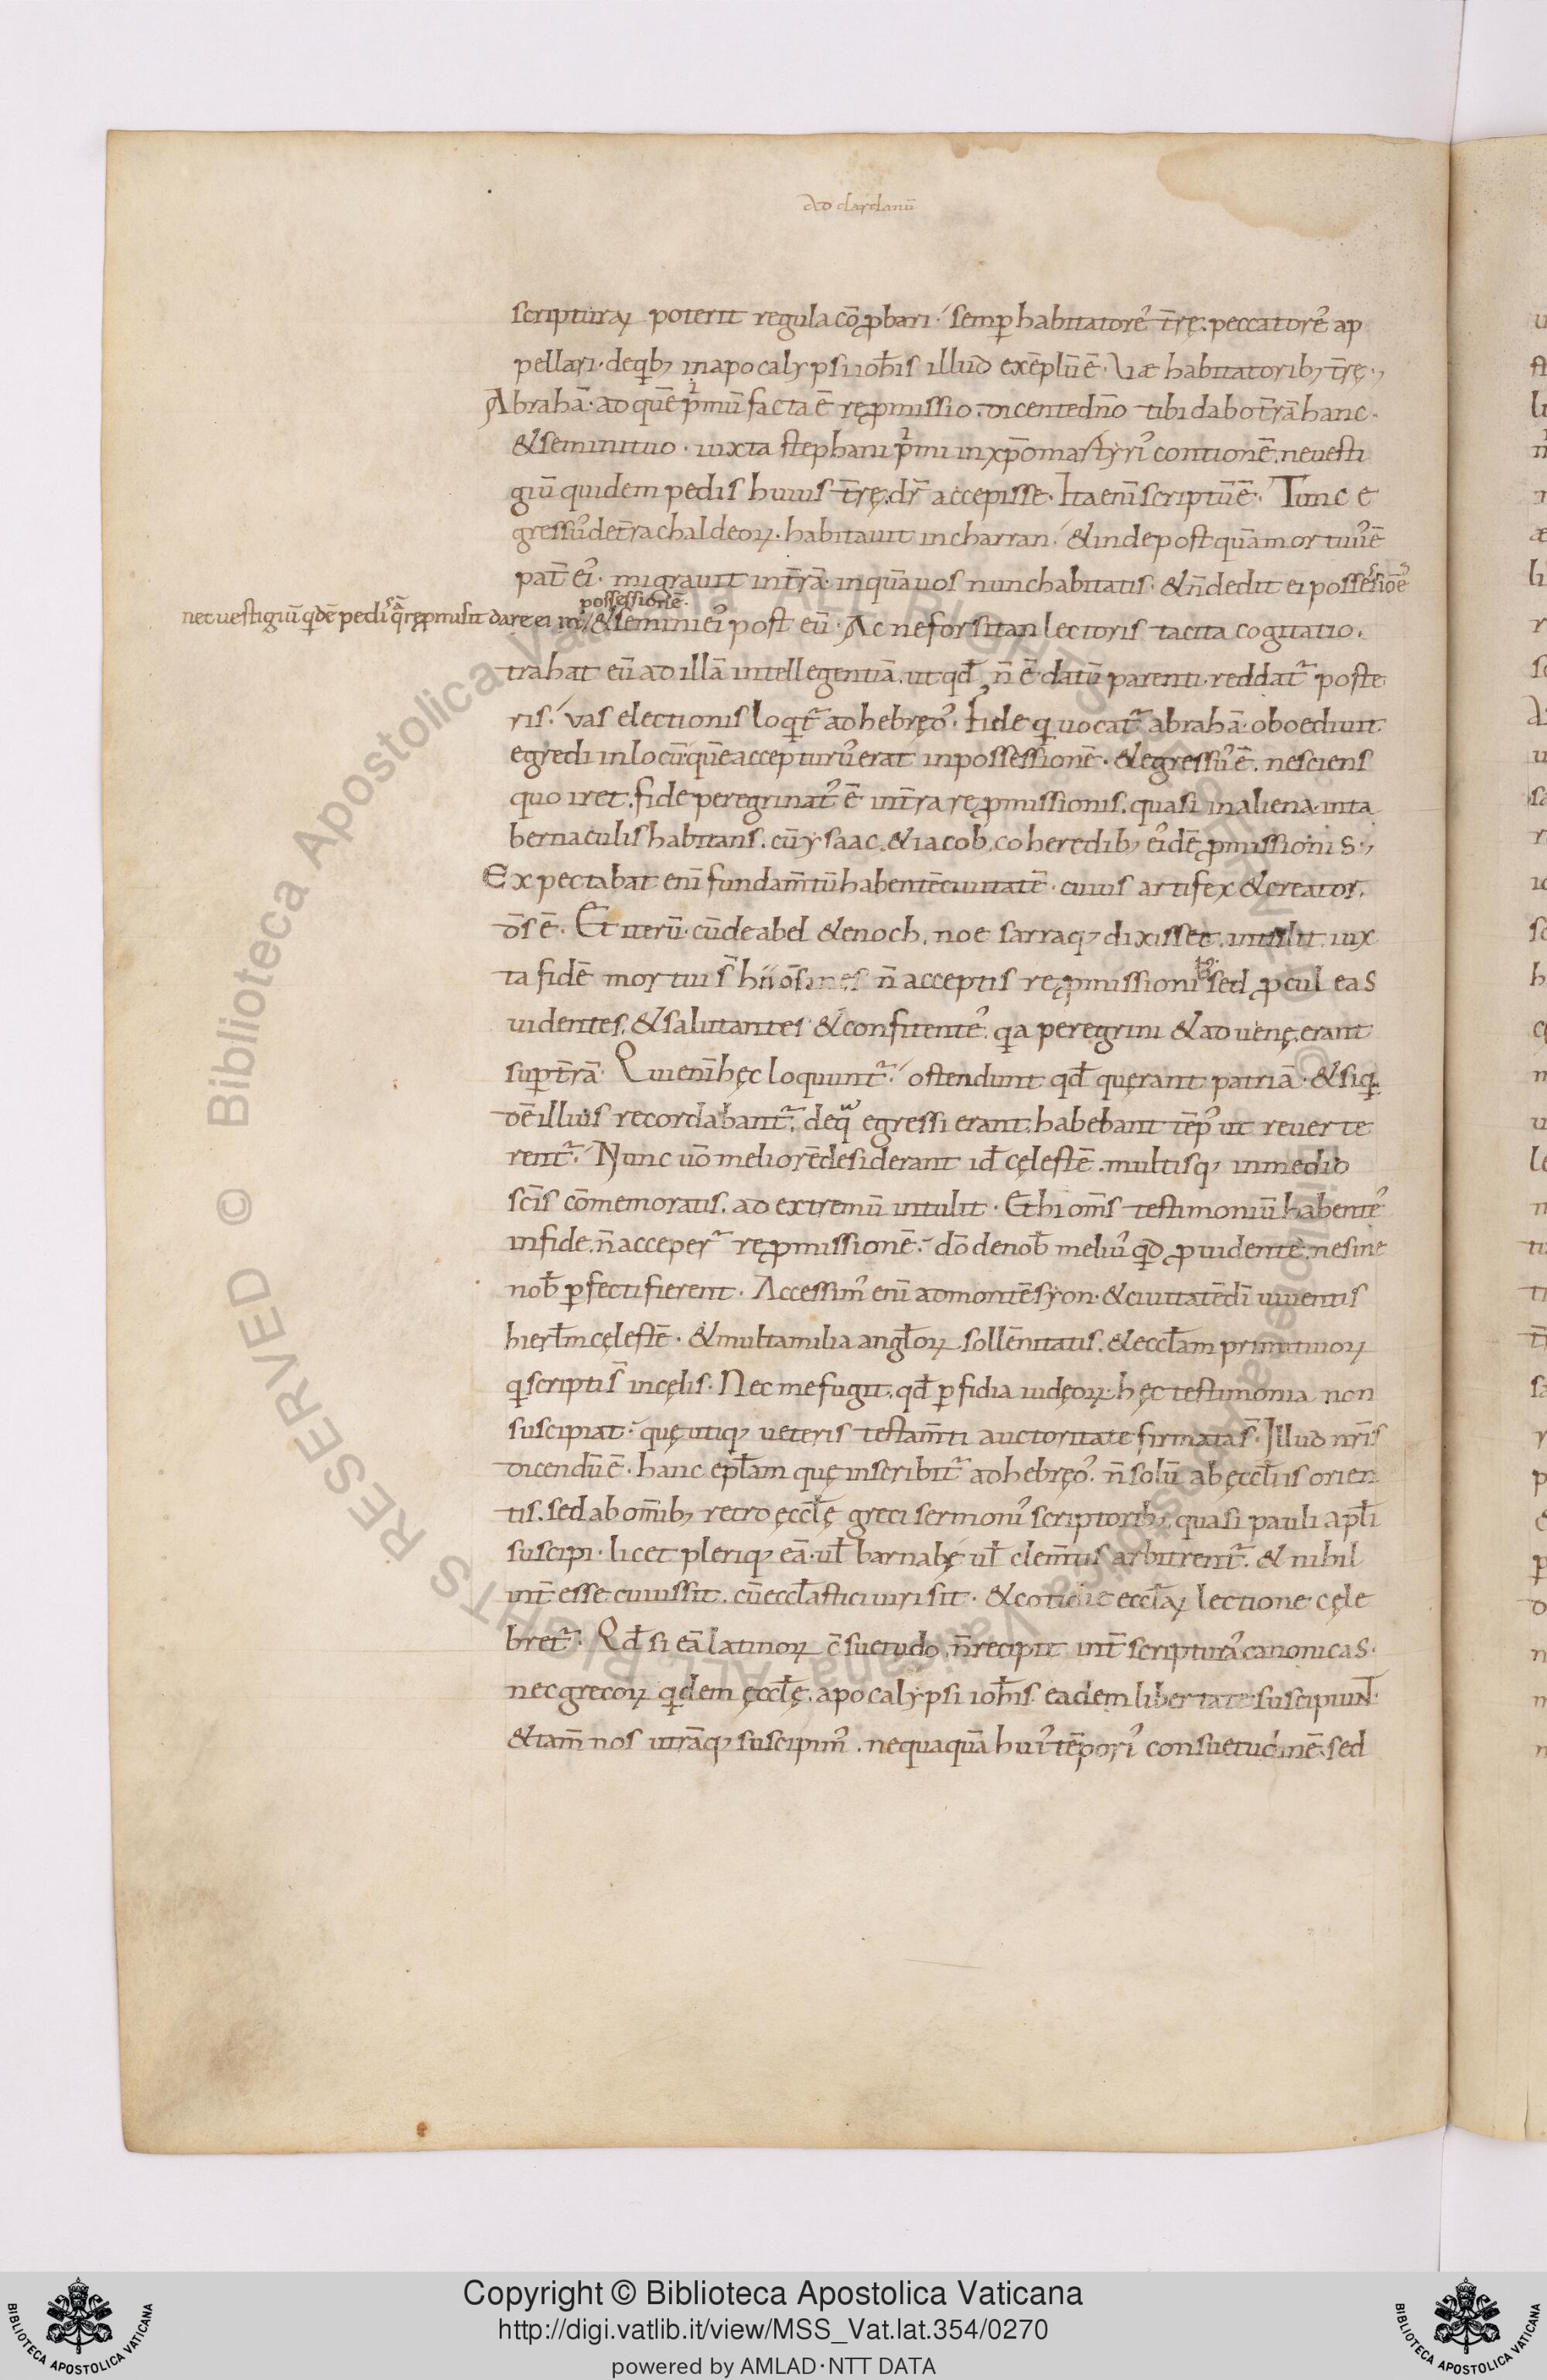 Ad dardanū
scripturaꝝ poterit regula cōꝓbari· semꝑ habitatorēˀ tr̄ę· peccatorēˀ ap
pellari· deqͥbꝫ inapocalypsi ioh̄is illud exēplū ē· Uae habitatoribꝫ tr̄ę·,
Abrahā· ad quē pͥmū facta ē reꝓmissio· dicente dn̄o tibi dabo tr̄ā hanc·
& semini tuo· iuxta stephani pͥmi in xp̄o martyrıˀ contionē· ne uesti
giū quidem pedis huius tr̄ę· dr̄ accepisse· Ita eni̅ scriptū ē· Tunc e
gressuˀ de tr̄a chaldeoꝝ· habitauit in charran· & inde post quā mortuuˀ ē
pat̄ eiˀ· migrauit in tr̄ā· in quā uos nunc habitatis· & n̄ dedit ei possessionēˀ
nec uestigiū qͥdē pedis· s; reꝓmisit dare ei in possessionē· & semini eiˀ post eū· Ac ne forsitan lectoris tacita cogitatio·
trahat eū ad illā intellegentiā· ut qd̄ n̄ ē datū parenti· reddat᷑ poste
ris· Vas electionis loqͥt᷑ ad hebręoˀ· Fide qͥ uocat᷑ abrahā· oboediuit
egredi in locū quē accepturuˀ erat in possessionē· & egressuˀ ē· nesciens
quo iret· fide peregrinatˀ ē in tr̄a reꝓmissionis· quasi in aliena· in ta
bernaculis habitans· cū ysaac· & iacob· coheredibꝫ eiˀdē ꝓmissionis·,
Expectabat eni̅ fundam̄tū habentē ciuitatē· cuius artifex & creator·
d̄s ē· Et iterū· cū de abel & enoch· noe sarraqꝫ dixisset· intulit iux
ta fidē mortui s̄ hii om̄s n̄ acceptis reꝓmissionibꝫ sed ꝓcul eas
uidentes· & salutantes & confitentēˀ· qͥa peregrini & aduenę erant
suꝑ tr̄ā· Qui eni̅ hęc loquunt᷑· ostendunt qd̄ quęrant patriā· & siqͥ
dē illius recordabant᷑· de qͣ egressi erant· habebant tēpˀ ut reuerte
rent᷑· Nunc uō meliorē desiderant id̄ cęlestē· multisqꝫ in medio
sc̄is cōmemoratis· ad extremū intulit· Et hi om̄s testimoniū habentēˀ
in fide· n̄ acceper᷑ reꝓmissionē· dō de nob̄ meliuˀ qͥd ꝓuidente· ne sine
nob̄ ꝑfecti fierent· Accessimˀ eni̅ ad montē syon· & ciuitatē dī uiuentis
hierłm cęlestē· & multa milia angłoꝝ sollēnitatis· & eccłam primitiuoꝝ
qͥ scripti s̄ in cęlis· Nec me fugit· qd̄ ꝑfidia iudęoꝝ hęc testimonia non
suscipiat· quę utiqꝫ ueteris testam̄ti auctoritate firmata s̄· Illud nr̄is
dicendū ē· hanc epłam quę inscribit᷑ ad hebręoˀ· n̄ solū ab ęccłiis orien
tis· sed ab om̄ibꝫ retro ęccłę greci sermoniˀ scriptoribꝫ· quasi pauli apłi
suscipi· licet pleriqꝫ eā· uł barnabę uł clem̄tis arbitrent᷑· & nihil
int̄esse cuius sit· cū eccłastici uiri sit· & cotidie eccłaꝝ lectione cęle
bret᷑· Qd̄ si eā latinoꝝ c̄suetudo n̄ recipit int̄ scripturaˀ canonicas·
nec grecoꝝ qͥdem ęccłę· apocalypsi ioh̄is eadem libertate suscipiuɴt·
& tam̄ nos utrāqꝫ suscipimˀ· nequaquā huiˀ tēporiˀ consuetudinē· sed
Copyright © Biblioteca Apostolica Vaticana
http://digi.vatlib.it/view/MSS_Vat.lat.354/0270
powered by AMLAD·NTT DATA